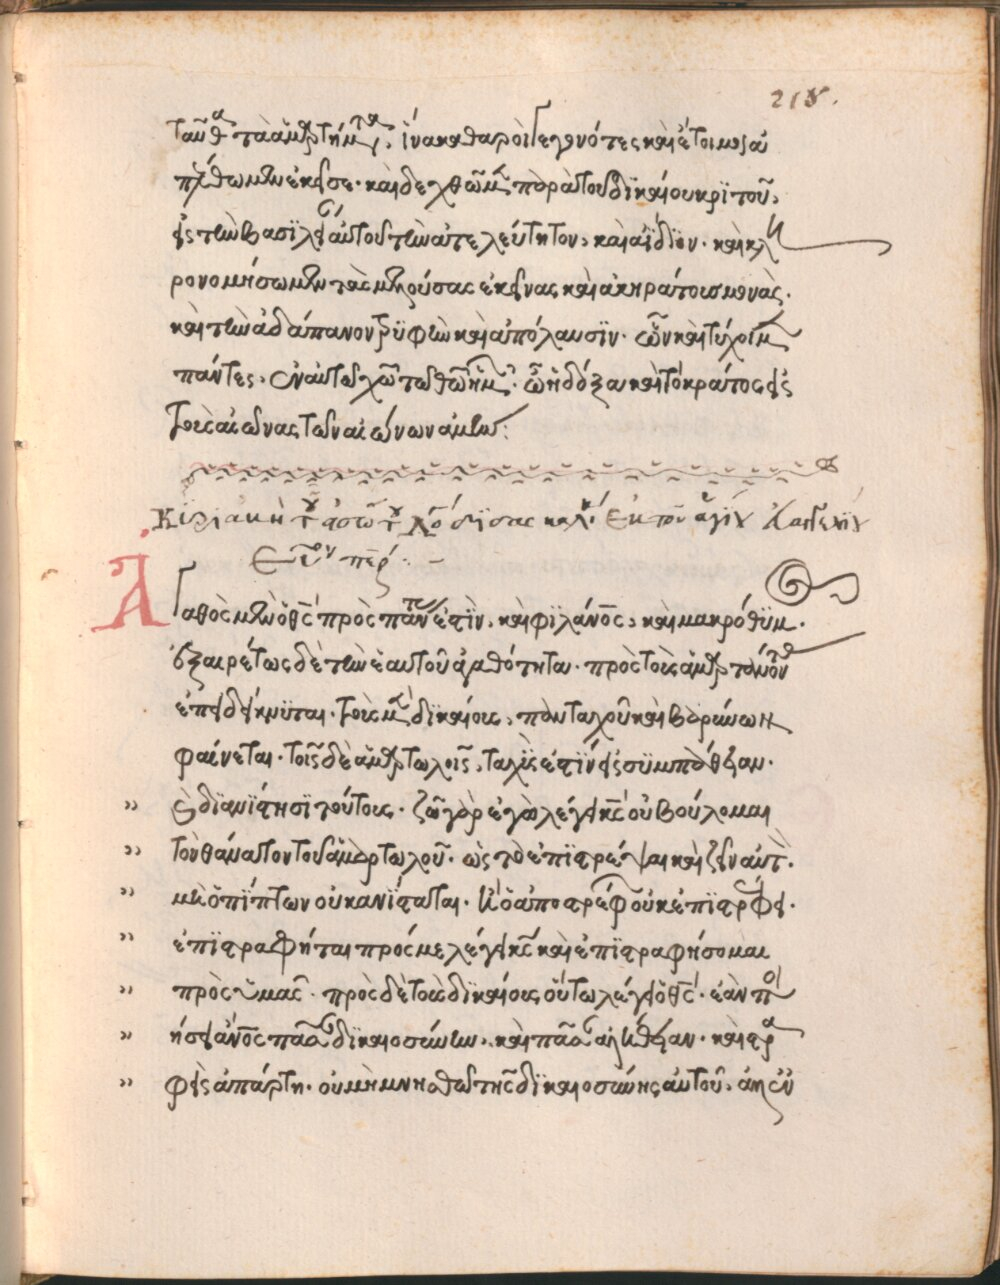 218.
ταῦθα τὰ ἁμαρτήματα, ἵνα καθαροὶ γεγονότες καὶ ἕτοιμοι ἀ
πέλθωμεν ἐκεῖσε· καὶ δεχθῶμεν παρὰ τοῦ δικαίου κριτοῦ,
εἰς τὴν βασιλείαν αὐτοῦ τὴν ἀτελεύτητον, καὶ ἀΐδιον· καὶ κλη
ρονομήσωμεν τὰς μενούσας ἐκείνας καὶ ἀκηράτους μονάς·
καὶ τὴν ἀδάπανον τρυφὴν καὶ ἀπόλαυσιν· ὧν καὶ τύχοιμεν
πάντες, ἐν αὐτῷ χῶ τῶ θῶ ἡμῶν· ὧ ἡ δόξα καὶ τὸ κράτος εἰς
τοὺς αἰῶνας τῶν αἰώνων ἀμήν:
Κυριακῆ τοῦ ἀσώτου ἐκ τὸν ἅγιον
Ἀγαθὸς μὲν ὁ θς πρὸς πάντας ἐστὶν, καὶ φιλάνος, καὶ μακρόθυμ·
ἐξαιρέτως δὲ τὴν ἑαυτοῦ ἀγαθότητα· πρὸς τοὺς ἁμαρτάνοντας
ἐπιδείκνυται· τοῖς μὲν δικαίοις, πανταχοῦ καὶ βαρύνων
φαίνεται· τοῖς δὲ ἁμαρτωλοῖς, ταχύς ἐστιν εἰς συμπάθειαν·
ζῶ γὰρ ἐγὼ λέγει κς οὐ βούλομαι
τὸν θάνατον τοῦ ἁμαρτωλοῦ· ὡς τὸ ἐπιστρέψαι καὶ ζεῖν αὐτὸν·
μὴ ὁ πίπτων οὐκ ἀνίσταται· ἢ ὁ ἀποστρέφων οὐκ ἐπιστρέφει·
ἐπιστραφῆται πρός με λέγει κς καὶ ἐπιστραφήσομαι
πρὸς ὑμᾶς· πρὸς δὲ τοὺς δικαίους οὕτω λέγει ὁ θς· ἐὰν ποι
ήσει ἄνος πᾶσαν δικαιοσύνην, καὶ πᾶσαν ἀλήθειαν· καὶ στρα
φεὶς ἁμάρτη· οὐ μὴ μνησθῶ τῆς δικαιοσύνης αὐτοῦ,